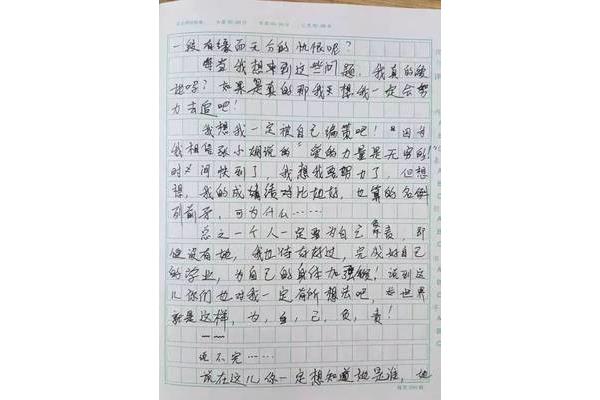 一段有缘而无分的忧恨呢？
每当我想来到这些问题，我真的爱
她吗？如果是真的那我天想我一定会努
力去追吧！
我想我一定被自己编策吧！"因为
我相信张小娴说的"爱的力量是无穷的！"
时间快到了，我想我要努力了，但想
想，我的成绩对比她好，也算的名例
列前茅，可为什么……
总之一个人一定要为自己负责，即
使没有她，我也得好好过，完成好自己
的学业，为自己的身体加强锻，谈到这
儿你们也对我一定有所想法吧，世界
就是这样，为，自，己，负，责！
说不完……
说在这儿你一定想知道她是谁，她